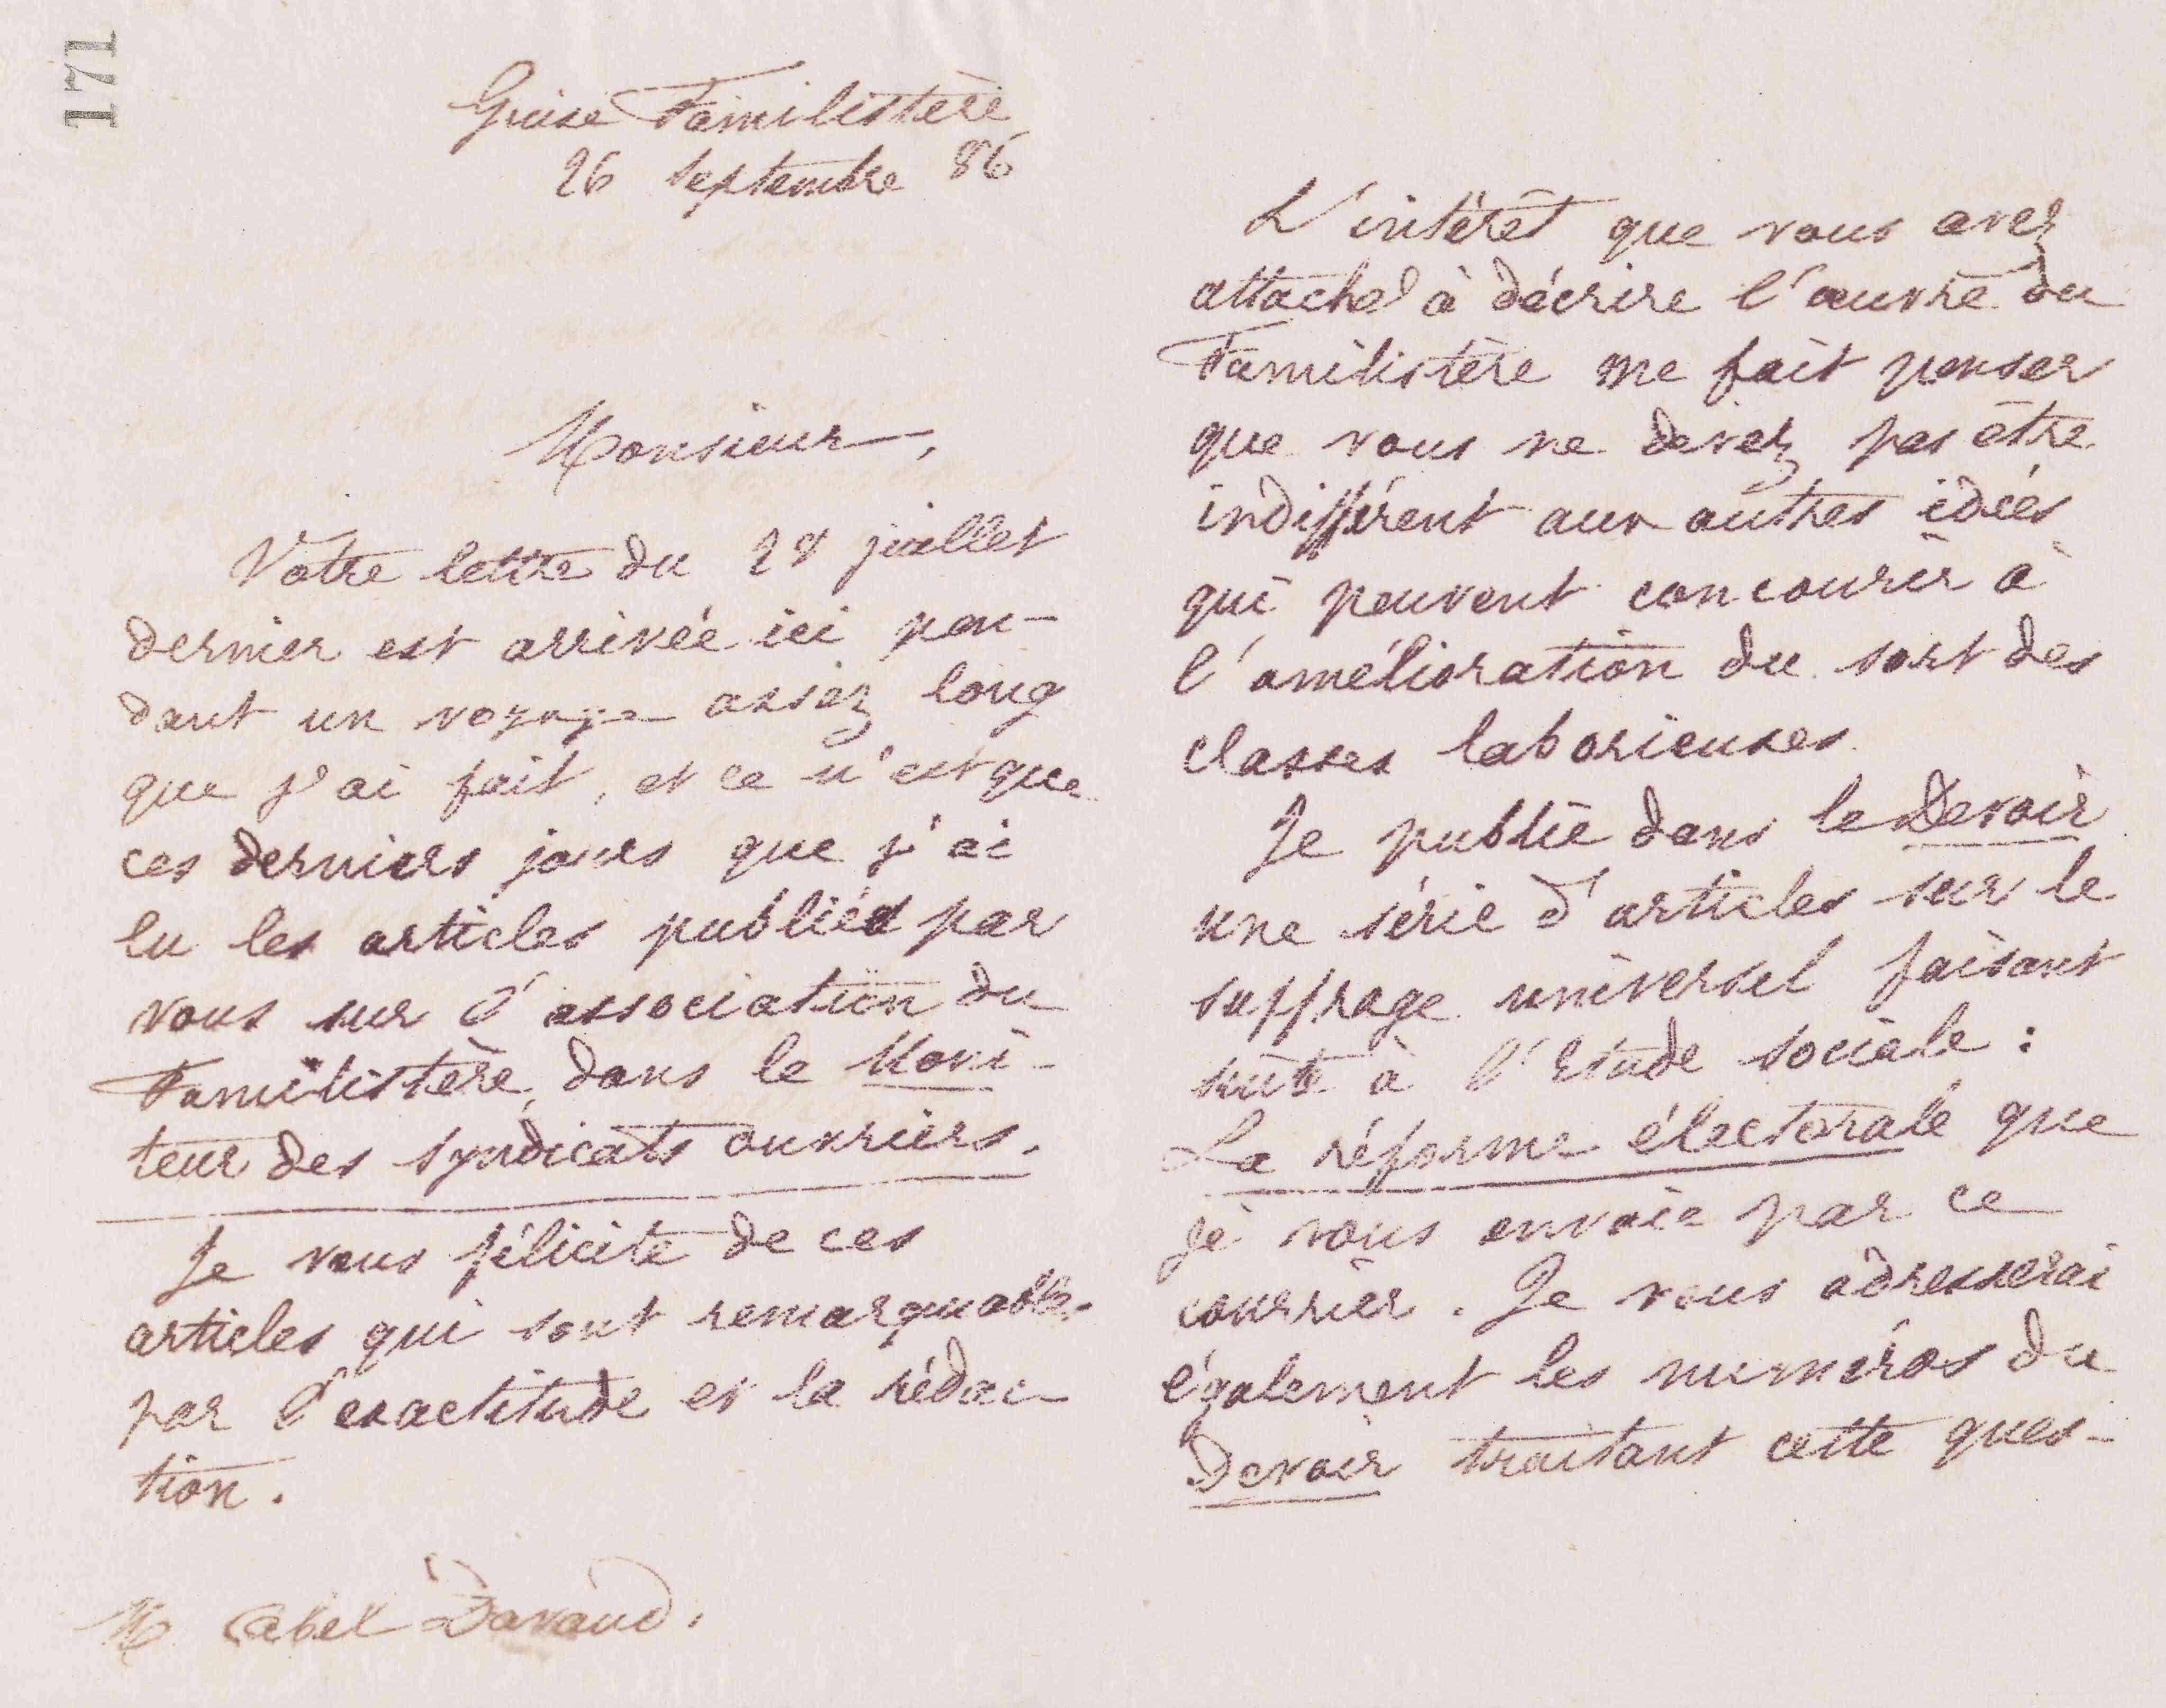 171
Guise Familistère
26 septembre 86
Monsieur,
Votre lettre du 28 juillet
dernier est arrivée ici pen-
dant un voyage assez long
que j'ai fait, et ce n'est que
ces derniers jours que j'ai
lu les articles publiés par
vous sur l'association du
Familistère, dans le Moni-
teur des syndicats ouvriers.
Je vous félicite de ces
articles qui sont remarquables
par l'exactitude et la rédac-
tion.
M Abel Davaud.
L'intérêt que vous avez
attaché à décrire l'œuvre du
Familistère me fait penser
que vous ne devez pas être
indifférent aux autres idées
qui peuvent concourir à
l'amélioration du sort des
classes laborieuses.
Je publie dans le Devoir
une série d'articles sur le
suffrage universel faisant
suite à l'Etude sociale :
La réforme électorale que
je vous envoie par ce
courrier. Je vous adresserai
également les numéros du
Devoir traitant cette ques-